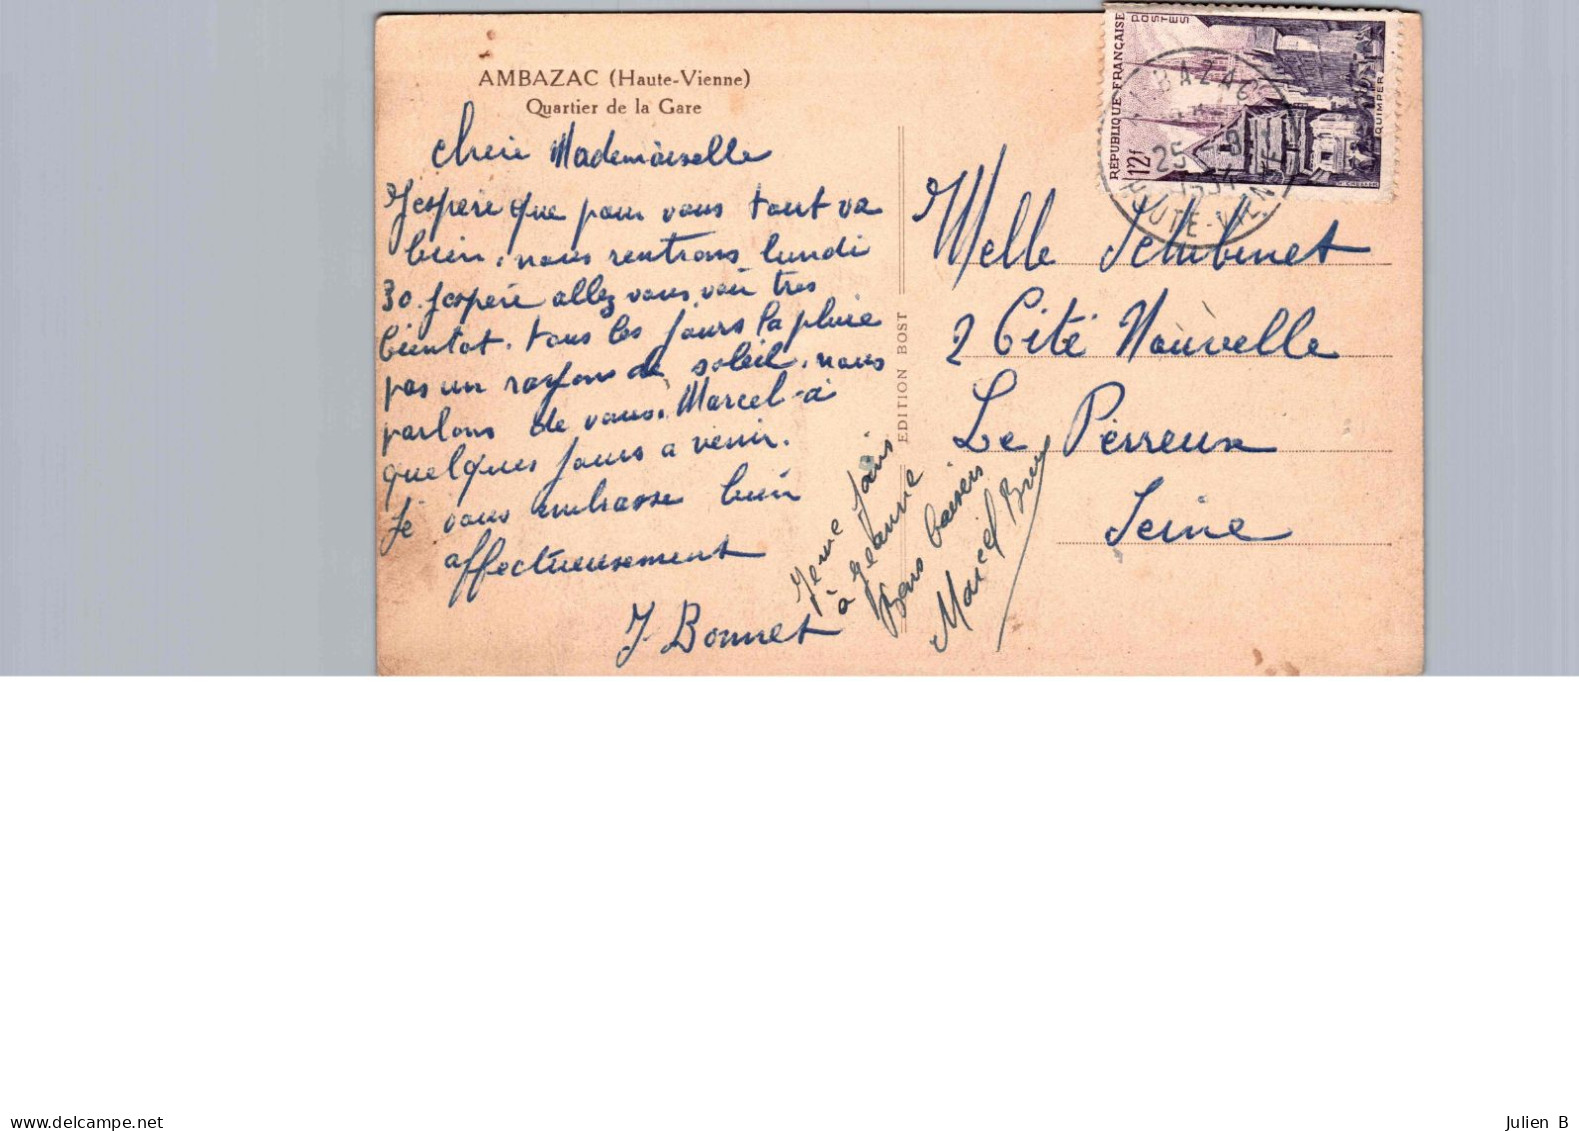 AMBAZAC (Haute-Vienne)
Quartier de la Gare
chère Mademoiselle
J'espère que pour vous tout va
bien, nous rentrons lundi
30. J'espère allez vous voir tres
bientot. tous les jours la pluie
pas un rayons de soleil. nous
parlons de vous. Marcel à
quelques jours a venir.
Je vous embrasse bien
affectueusement
J. Bonnet
à Jeanne
Bons baisers
Marcel
EDITION BOST
RÉPUBLIQUE FRANÇAISE
POSTES
12f
QUIMPER
BAZAC
25 -8
1954
HAUTE-VIENNE
Melle
2 Cité Nouvelle
Le Perreux
Seine
www.delcampe.net
Julien B